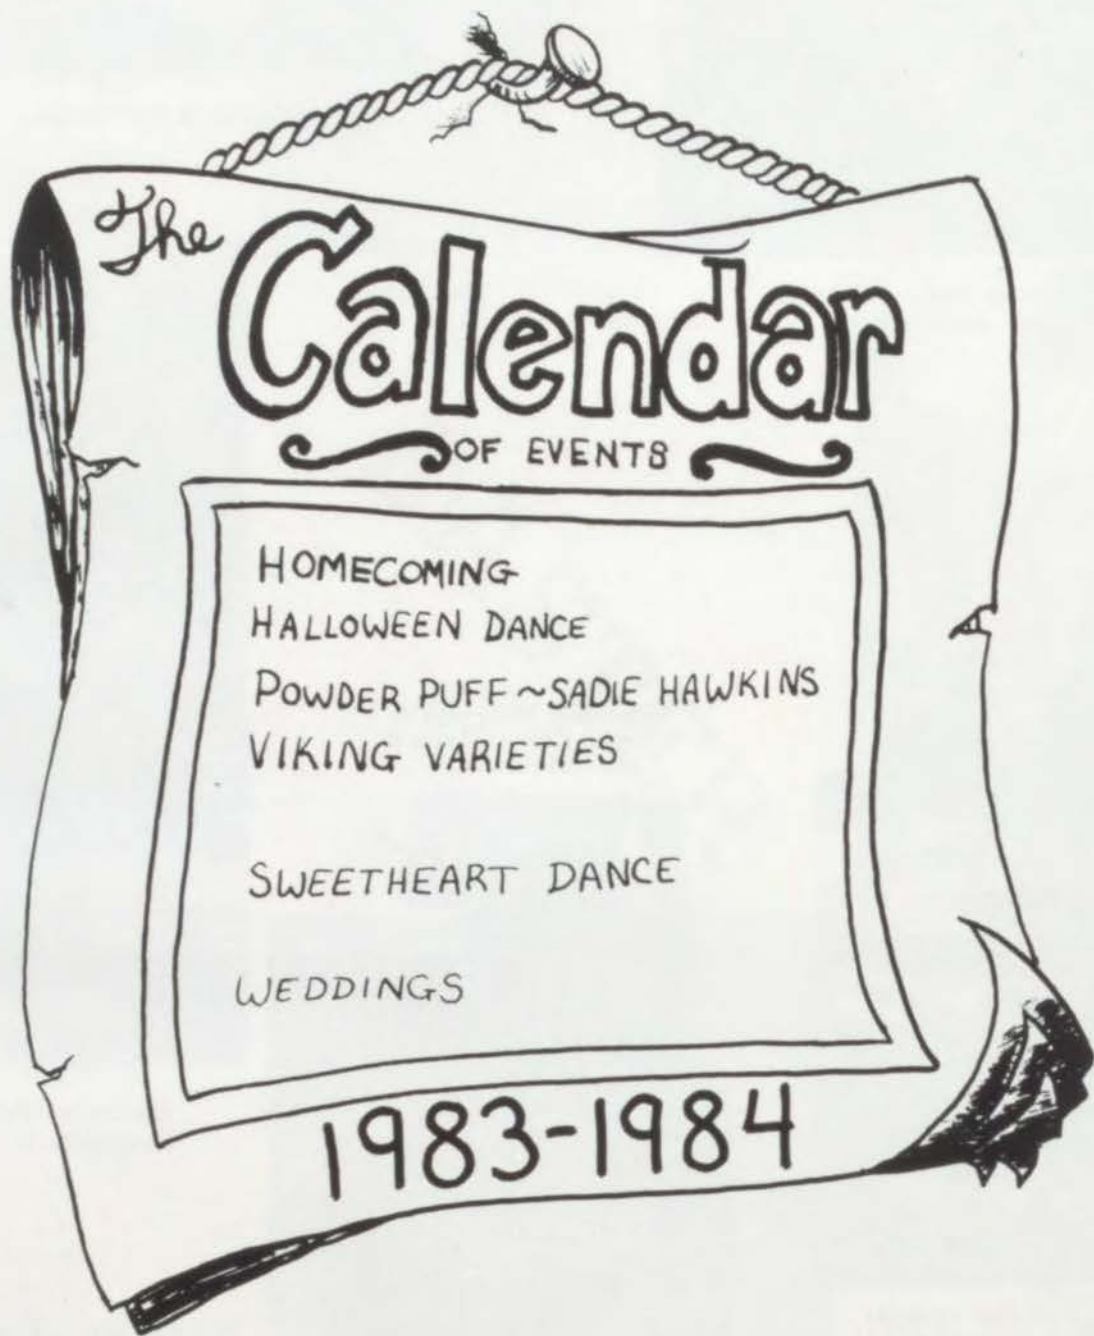 The
Calendar
OF EVENTS
HOMECOMING
HALLOWEEN DANCE
POWDER PUFF ~ SADIE HAWKINS
VIKING VARIETIES
SWEETHEART DANCE
WEDDINGS
1983-1984